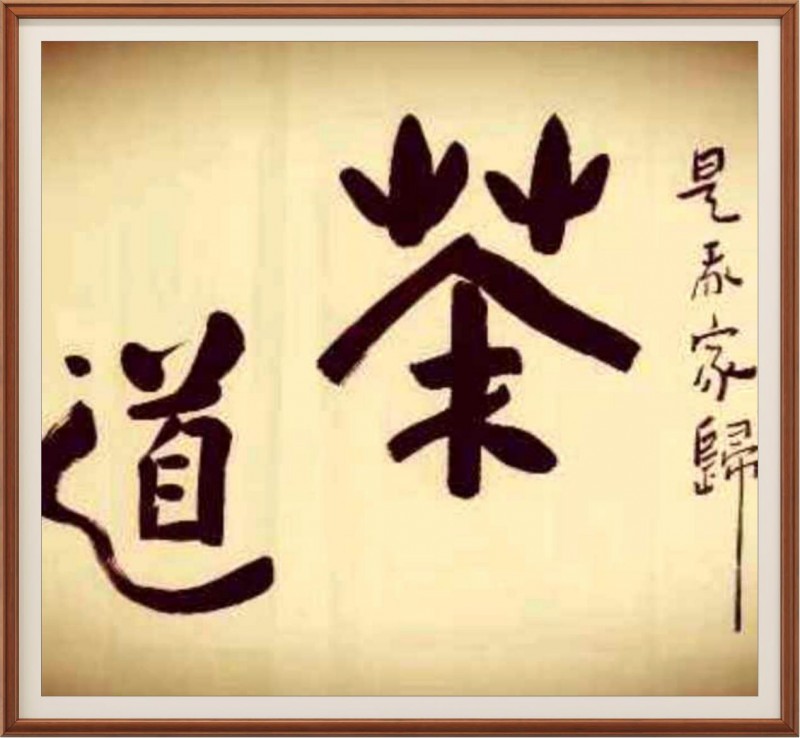 是家歸
茶道